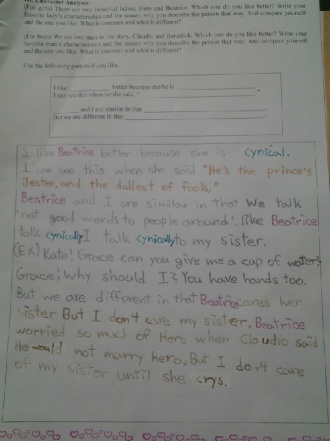 Character Analysis:
(For girls) There are two beautiful ladies, Hero and Beatrice. Which one do you like better? Write your
favorite lady's characteristics and the reason why you describe the person that way. And compare yourself
and the one you like. What is common and what is different?
(For boys) We see two men in the story, Claudio and Benedick. Which one do you like better? Write your
favorite man's characteristics and the reason why you describe the person that way. And compare yourself
and the one you like. What is common and what is different?
Use the following pattern if you like.
I like better because she/he is
I can see this when he/she said, "
and I are similar in that
But we are different in that
I like Beatrice better because she is cynical.
I can see this when she said "He's the prince's
Jester, and the dullest of fools,"
Beatrice and I are similar in that we talk
"not good words to people around". like Beatrice
talk cynically I talk cynically to my sister.
(Ex) Kate! Grace can you give me a cup of water?
Grace; Why should I? You have hands too.
But we are different in that Beatrice cares her
sister But I don't care my sister. Beatrice
worried so much of Hero when Claudio said
He would not marry Hero, But I don't care
of my sister until she crys.